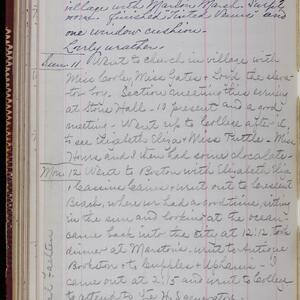 village with Marion Marsh. Swept
room, finished tinted Paws and
one window cushion.
Lovely weather.
Sun. 11 Went to church in village with
Miss Cooley Miss Gates +
tor boy. Section meeting this evening
at Stone Hall - 13 present and a good
meeting - Went up to College after it
to see Elizabeth Eliza + Miss Tuttle - Miss
and I then had some chocolate -
Mon. 12 Went to Boston with Elizabeth Eliza
+ went out to Crescent
Beach, where we had a good time, sitting
in the sun and looking at the ocean -
came back into the city at 12:12 took
dinner at Marston's, went to Antique
Bookstore + to Cupples + Upham's - I
came out at 2:15 and went to College
to attend to the